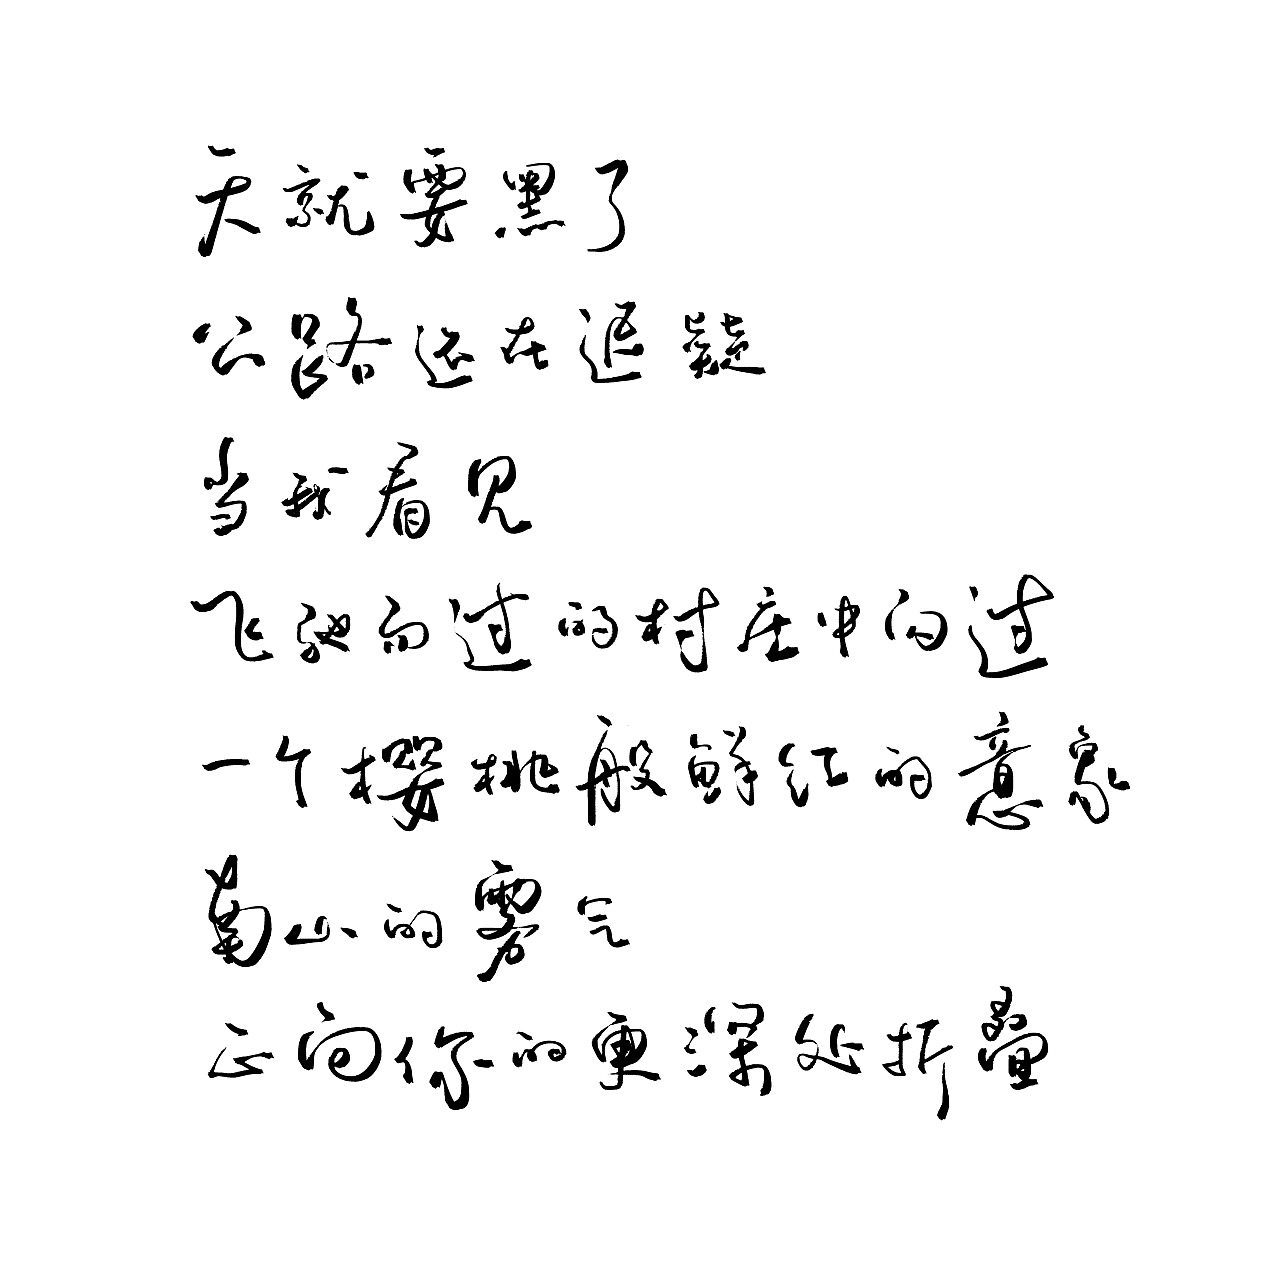 天就要黑了
公路还在迟疑
当我看见
飞驰而过的村庄中闪过
一个樱桃般鲜红的意象
南山的雾气
正向你的更深处折叠